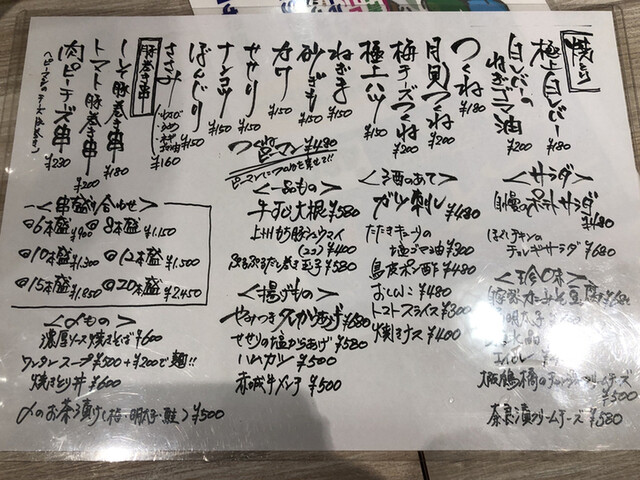 焼とり
極上白レバー ¥180
白レバーの
ねぎゴマ油 ¥200
つくね ¥180
月見つくね ¥200
梅チーズつくね ¥200
極上ハツ ¥150
ねぎま ¥150
砂ぎも ¥150
カワ ¥150
せせり ¥150
ナンコツ ¥150
ぼんじり ¥150
ささみ ¥160
豚巻き串
しそ豚巻き串 ¥180
トマト豚巻き串 ¥200
肉ピーチーズ串 ¥230
つくねピーマン ¥480
ピーマンにつくねを乗せて!!
<串盛り合わせ>
◎6本盛 ¥900 ◎8本盛 ¥1.150
◎10本盛 ¥1.300 ◎12本盛 ¥1.500
◎15本盛 ¥1.850 ◎20本盛 ¥2.450
<〆もの>
濃厚ソース焼きそば ¥600
ワンタンスープ ¥500 +¥200で麺!!
焼きとり丼 ¥600
〆のお茶漬け(梅・明太子・鮭) ¥500
<一品もの>
牛すじ大根 ¥580
上州もち豚シュウマイ
(2コ) ¥400
ぷるぷるだし巻き玉子 ¥580
<揚げもの>
やみつき尺からあげ ¥680
せせりの塩からあげ ¥580
ハムカツ ¥500
赤城牛メンチ ¥500
<酒のあて>
ガツ刺し ¥480
たたききゅうりの
塩ゴマ油 ¥300
鳥皮ポン酢 ¥480
おしんこ ¥480
トマトスライス ¥300
焼きナス ¥400
<サラダ>
自慢のポテトサラダ
¥480
ほぐしチキンの
チョレギサラダ ¥680
<珍味>
¥680
明太子
水晶
¥500
奈良漬クリームチーズ ¥580